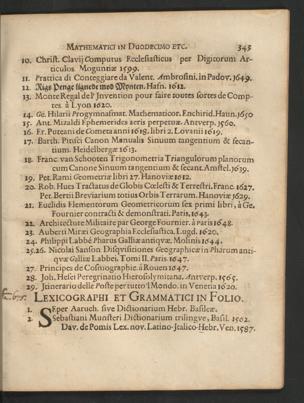 MATHEMATICI IN DUODECIMO ETC. 343
10. Christ. Clavij Computus Ecclesiasticus per Digitorum Ar-
ticulos Moguntiæ 1599.
11. Prattica di Conteggiare da Valent. Ambrosini, in Padov. 1649.
12. Rigs Penge lignede mod Mynten. Hafn. 1612.
13. Monte Regal de l' Invention pour faire toutes sortes de Comp-
tes à Lyon 1620.
14. Ge. Hilarii Progymnasmat. Mathematicon. Enchirid. Haun. 1650
15. Ant. Mizaldi Ephemerides aëris perpetuæ. Antverp. 1560.
16. Fr. Puteani de Cometa anni 1618. libri 2. Lovanii 1619.
17. Barth. Pitisci Canon Manualis Sinuum tangentium & secan-
tium. Heidelbergæ 1613.
18. Franc. van Schooten Trigonometria Triangulorum planorum
cum Canone Sinuum tangentium & secant. Amstel. 1639.
19. Pet. Rami Geometriæ libri 27. Hanoviæ 1612.
20. Rob. Hues Tractatus de Globis Cœlesti & Terrestri. Franc. 1627.
Pet. Bertii Breviarium totius Orbis Terrarum. Hanoviæ 1629.
21. Euclidis Elementorum Geometricorum sex primi libri, à Ge.
Fournier contracti & demonstrati. Paris. 1643.
22. Architecture Militaire par George Fournier. à paris 1648.
23. Auberti Miræi Geographia Ecclesiastica. Lugd. 1620.
24. Philippi Labbé Pharus Galliæ antiquæ. Molinis 1644.
25. 26. Nicolai Sanson Disqvisitiones Geographicæ in Pharum anti-
quæ Galliæ Labbei. Tom II. Paris. 1647.
27. Principes de Cosmographie. à Rouen 1647.
28. Joh. Helsi Peregrinatio Hierosolymitana. Antverp. 1565.
29. Itinerario delle Poste per tutto 'l Mondo. in Venetia 1620.
LEXICOGRAPHI ET GRAMMATICI IN FOLIO.
1. SEper Aaruch. sive Dictionarium Hebr. Basileæ.
2. Sebastiani Munsteri Dictionarium trilingve, Basil. 1562.
Dav. de Pomis Lex. nov. Latino-Italico-Hebr. Ven. 1587.